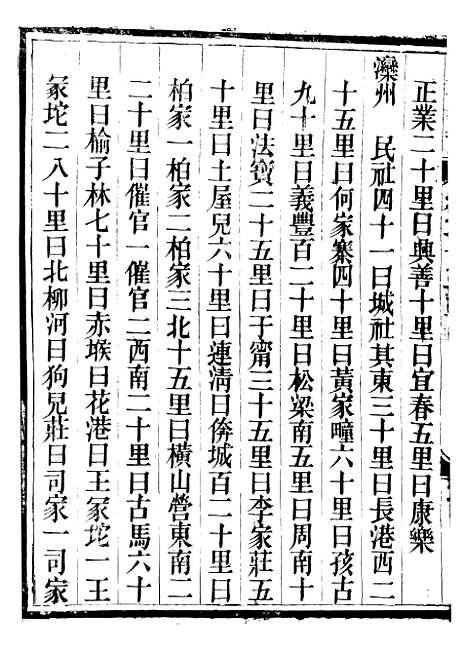 正業二十里曰興善十里曰宜春五里曰康樂
灤州　民社四十一曰城社其東三十里曰長港西二
十五里曰何家寨四十里曰黃家疃六十里曰孩古
九十里曰義豐百二十里曰松梁南五里曰周南十
里曰法寶二十五里曰子甯三十五里曰李家莊五
十里曰土屋兒六十里曰連淸曰倴城百二十里曰
柏家一柏家二柏家三北十五里曰橫山營東南二
二十里曰催官一催官二西南二十里曰古馬六十
里曰榆子林七十里曰赤堠曰花港曰王冢坨一王
冢坨二八十里曰北柳河曰狗兒莊曰司家一司家